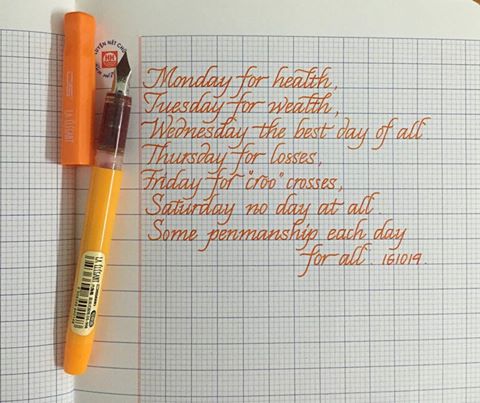 Monday for health,
Tuesday for wealth,
Wednesday the best day of all
Thursday for losses,
Friday for "croo" crosses,
Saturday no day at all
Some penmanship each day
for all . 161019.
LUYỆN NÉT CHỮ
HH